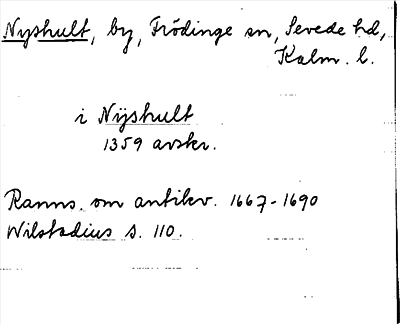 Nyshult, by, Frödinge sn, Sevede hd,
Kalm. l.
i Nÿshult
1359 avskr.
Ranns. om antikv. 1667-1690
Wilstadius s. 110.